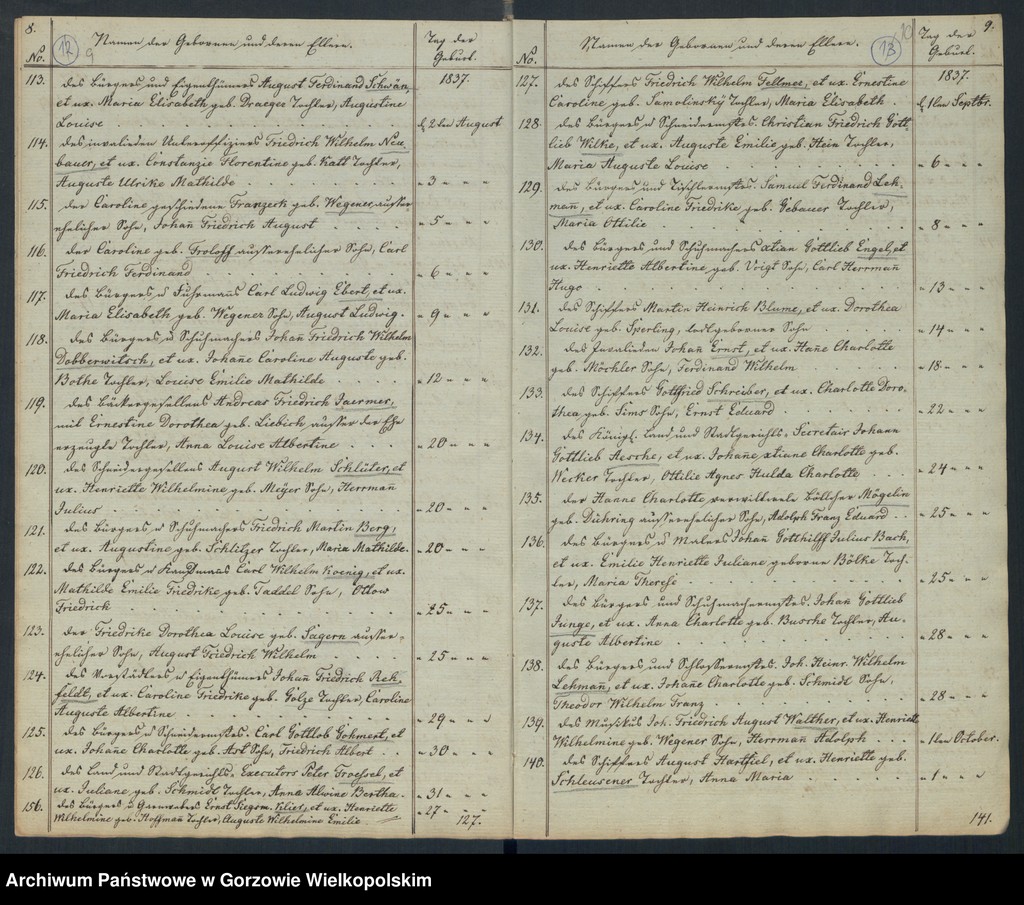 8.
12
9
No.
Namen der Geborenen und deren Eltern.
Tag der Geburt.
1837.
113. des Bürgers und Eigenthümers August Ferdinand Schwän,
et ux. Maria Elisabeth geb. Draeger Tochter, Augustine
Louise d. 2ten August
114. des invaliden Unteroffiziers Friedrich Wilhelm Neu-
bauer, et ux. Constanzie Florentine geb. Katt Tochter,
Auguste Ulrike Mathilde " 3 " " "
115. der Caroline geschiedene Franzeck geb. Wegener, ausser-
ehelicher Sohn, Johan̄ Friedrich August " 5 " " "
116. der Caroline geb. Froloff ausserehelicher Sohn, Carl
Friedrich Ferdinand " 6 " " "
117. des Bürgers u Fuhrman̄s Carl Ludwig Ebert, et ux.
Maria Elisabeth geb. Wegener Sohn, August Ludwig. " 9 " " "
118. des Bürgers u Schuhmachers Johan̄ Friedrich Wilhelm
Dobberwitsch, et ux. Johan̄e Caroline Auguste geb.
Bothe Tochter, Louise Emilie Mathilde " 12 " " "
119. des Bäckergesellens Andreas Friedrich Jaermer,
mit Ernestine Dorothea geb. Liebich, ausser der Ehe
erzeugte Tochter, Anna Louise Albertine " 20 " " "
120. des Schneidergesellens August Wilhelm Schlüter, et
ux. Henriette Wilhelmine geb. Meyer Sohn, Herrman̄
Julius " 20 " " "
121. des Bürgers u Schuhmachers Friedrich Martin Berg,
et ux. Augustine geb. Schlitzer Tochter, Maria Mathilde. " 20 " " "
122. des Bürgers u Kaufman̄s Carl Wilhelm Koenig, et ux.
Mathilde Emilie Friedrike geb. Taddel Sohn, Ottow
Friedrich " 25 " " "
123. der Friedrike Dorothea Louise geb. Sägern ausser-
ehelicher Sohn, August Friedrich Wilhelm " 25 " " "
124. des Vorstädters u Eigenthümers Johan̄ Friedrich Reh-
feldt, et ux. Caroline Friedrike geb. Golze Tochter, Caroline
Auguste Albertine " 29 " " "
125. des Bürgers u Schneidermstrs. Carl Gottlob Gohmert, et
ux. Johan̄e Charlotte geb. Art Sohn, Friedrich Albert " 30 " " "
126. des Land und Stadtgerichts-Executors Peter Troehsel, et
ux. Juliane geb. Schmidt Tochter, Anna Alwine Bertha. " 31 " " "
156. des Bürgers u Garnwebers Ernst Siegsm. Kliet, et ux. Henriette
Wilhelmine geb. Hoffman̄ Tochter, Auguste Wilhelmine Emilie " 27 " " "
127.
13
10
9.
No.
Namen der Geborenen und deren Eltern.
Tag der Geburt.
1837.
127. des Schiffers Friedrich Wilhelm Fellmer, et ux. Ernestine
Caroline geb. Samolinsky Tochter, Maria Elisabeth d. 1ten Septbr.
128. des Bürgers u Schneidermstrs. Christian Friedrich Gott-
lieb Wilke, et ux. Auguste Emilie geb. Hein Tochter,
Maria Auguste Louise " 6 " " "
129. des Bürgers und Tischlermstrs. Samuel Ferdinand Leh-
man̄, et ux. Caroline Friedrike geb. Gebauer Tochter,
Maria Ottilie " 8 " " "
130. des Bürgers und Schuhmachers xtian Gottlieb Engel, et
ux. Henriette Albertine geb. Voigt Sohn, Carl Herrman̄
Hugo " 13 " " "
131. des Schiffers Martin Heinrich Blume, et ux. Dorothea
Louise geb. Sperling, todtgeborner Sohn " 14 " " "
132. des Invaliden Johan̄ Ernst, et ux. Han̄e Charlotte
geb. Möschler Sohn, Ferdinand Wilhelm " 18 " " "
133. des Schiffers Gottfried Schreiber, et ux. Charlotte Doro-
thea geb. Sims Sohn, Ernst Eduard " 22 " " "
134. des Königl. Land und Stadtgerichts-Secretair Johann
Gottlieb Aesche, et ux. Johan̄e xtiane Charlotte geb.
Wecker Tochter, Ottilie Agnes Hulda Charlotte " 24 " " "
135. der Hanne Charlotte, verwittwete Böttcher Mögelin
geb. Dühring ausserehelicher Sohn, Adolph Franz Eduard " 25 " " "
136. des Bürgers u Malers Johan̄ Gotthilff Julius Bach,
et ux. Emilie Henriette Juliane geborne Bölke Toch-
ter, Maria Therese " 25 " " "
137. des Bürgers und Schuhmachermstrs. Johan̄ Gottlieb
Junge, et ux. Anna Charlotte geb. Busche Tochter, Au-
guste Albertine " 28 " " "
138. des Bürgers und Schlossermstrs. Joh. Heinr. Wilhelm
Lehman̄, et ux. Johan̄e Charlotte geb. Schmidt Sohn,
Theodor Wilhelm Franz " 28 " " "
139. des Musikus Joh. Friedrich August Walther, et ux. Henriette
Wilhelmine geb. Wegener Sohn, Herrman̄ Adolph " 1ten October.
140. des Schiffers August Hartfiel, et ux. Henriette geb.
Schleusener Tochter, Anna Maria " 1 " " "
141.
Archiwum Państwowe w Gorzowie Wielkopolskim